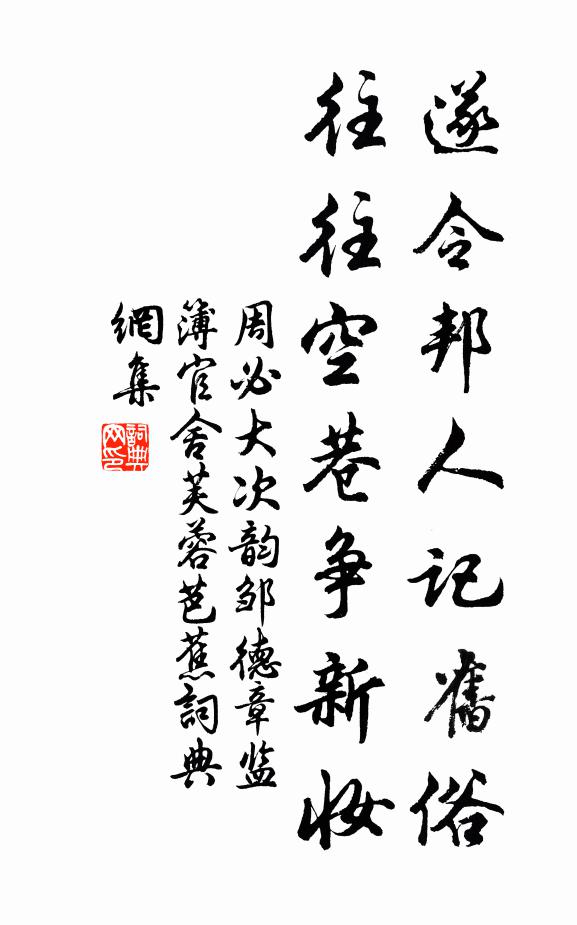 遂令邦人记舊俗
往往空巷争新妆
周必大次韵邹德章监
簿官舍芙蓉芭蕉詞典
網集
詞典
网印